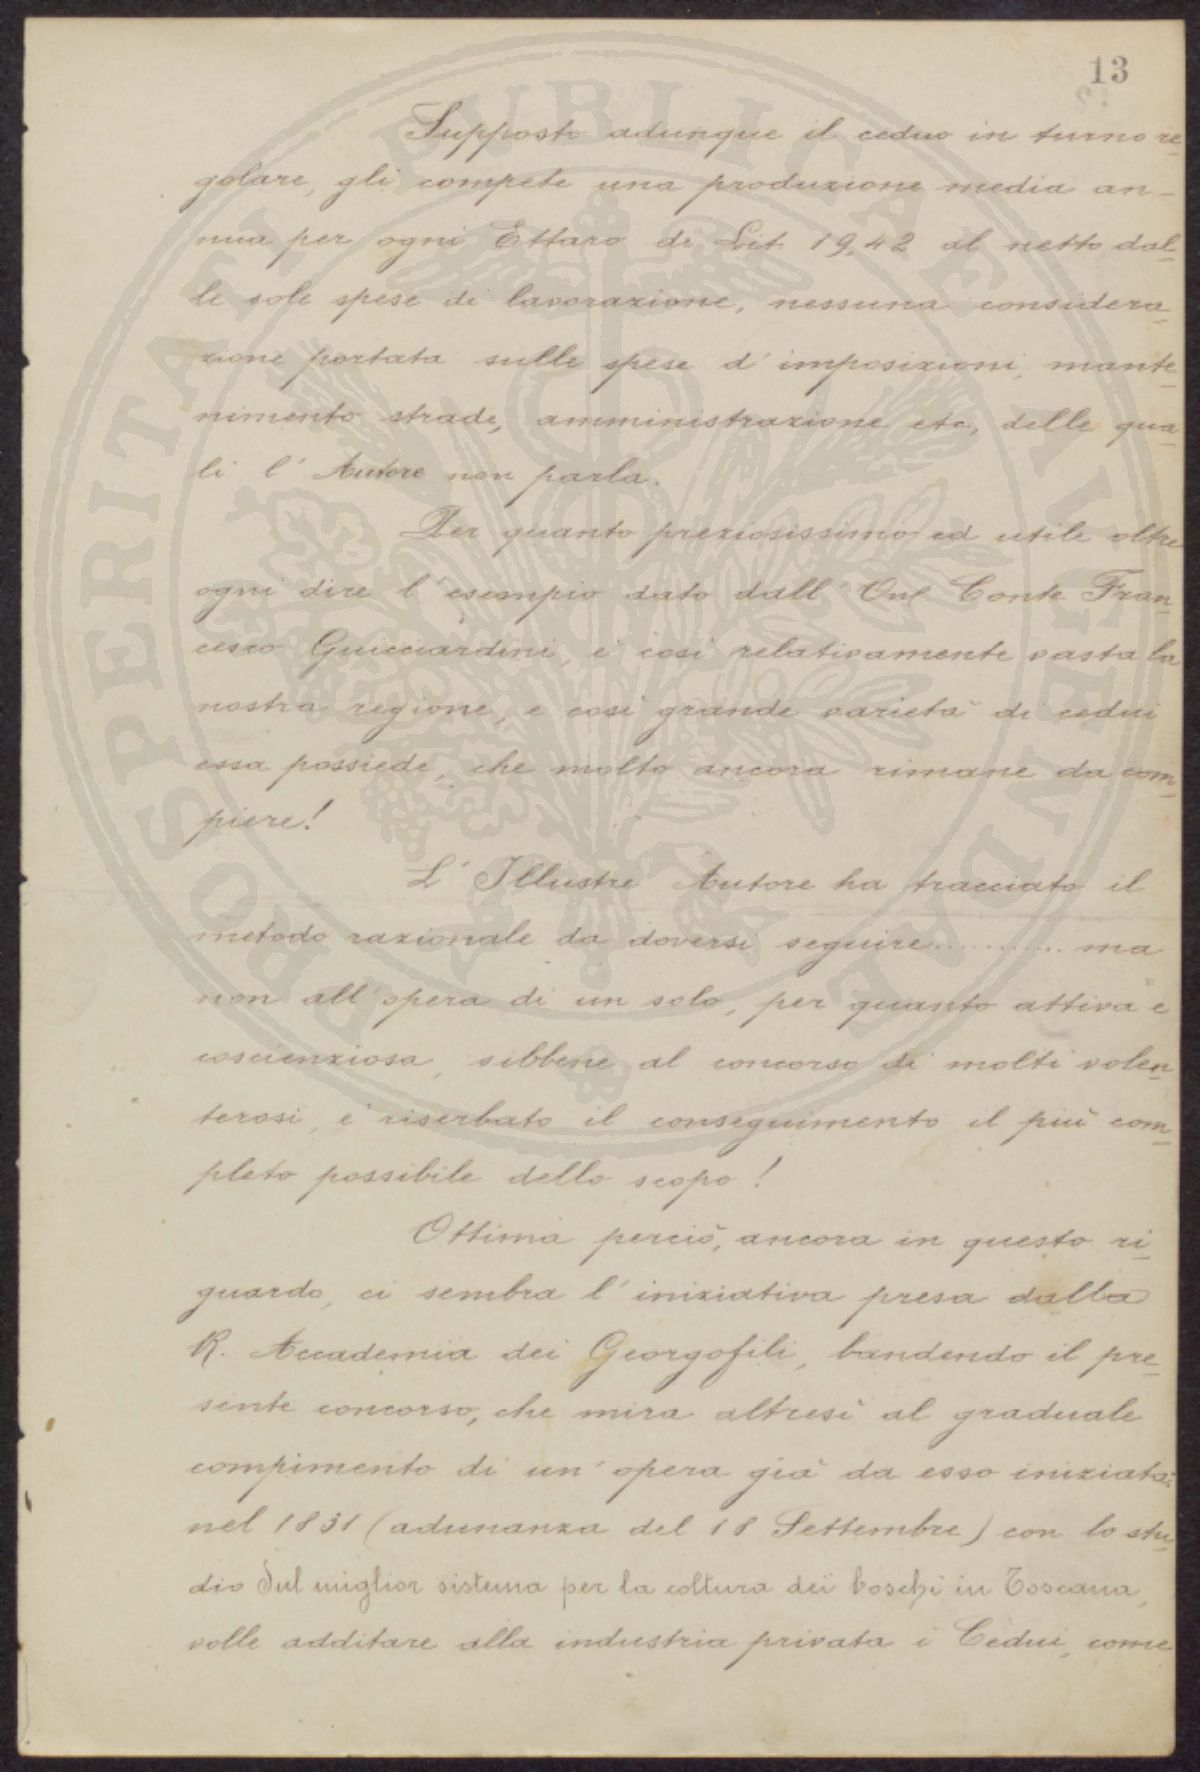 13
Supposto adunque il ceduo in turno re-
golare, gli compete una produzione media an-
nua per ogni Ettaro di Lit. 19,42 al netto dal-
le sole spese di lavorazione, nessuna considera-
zione portata sulle spese d'imposizioni, mante-
nimento strade, amministrazione etc, delle qua-
li l'Autore non parla.
Per quanto preziosissimo ed utile oltre
ogni dire l'esempio dato dall'On.le Conte Fran-
cesco Guicciardini, è così relativamente vasta la
nostra regione, e così grande varietà di cedui
essa possiede, che molto ancora rimane da com-
piere!
L'Illustre Autore ha tracciato il
metodo razionale da doversi seguire........... ma
non all'opera di un solo, per quanto attiva e
coscienziosa, sibbene al concorso di molti volen-
terosi, è riserbato il conseguimento il più com-
pleto possibile dello scopo!
Ottima perciò, ancora in questo ri-
guardo, ci sembra l'iniziativa presa dalla
R. Accademia dei Georgofili, bandendo il pre-
sente concorso, che mira altresì al graduale
compimento di un'opera già da esso iniziata
nel 1831 (adunanza del 18 Settembre) con lo stu-
dio Sul miglior sistema per la coltura dei boschi in Toscana,
volle additare alla industria privata i Cedui, come
PROSPERITATI PUBLICAE AUGENDAE